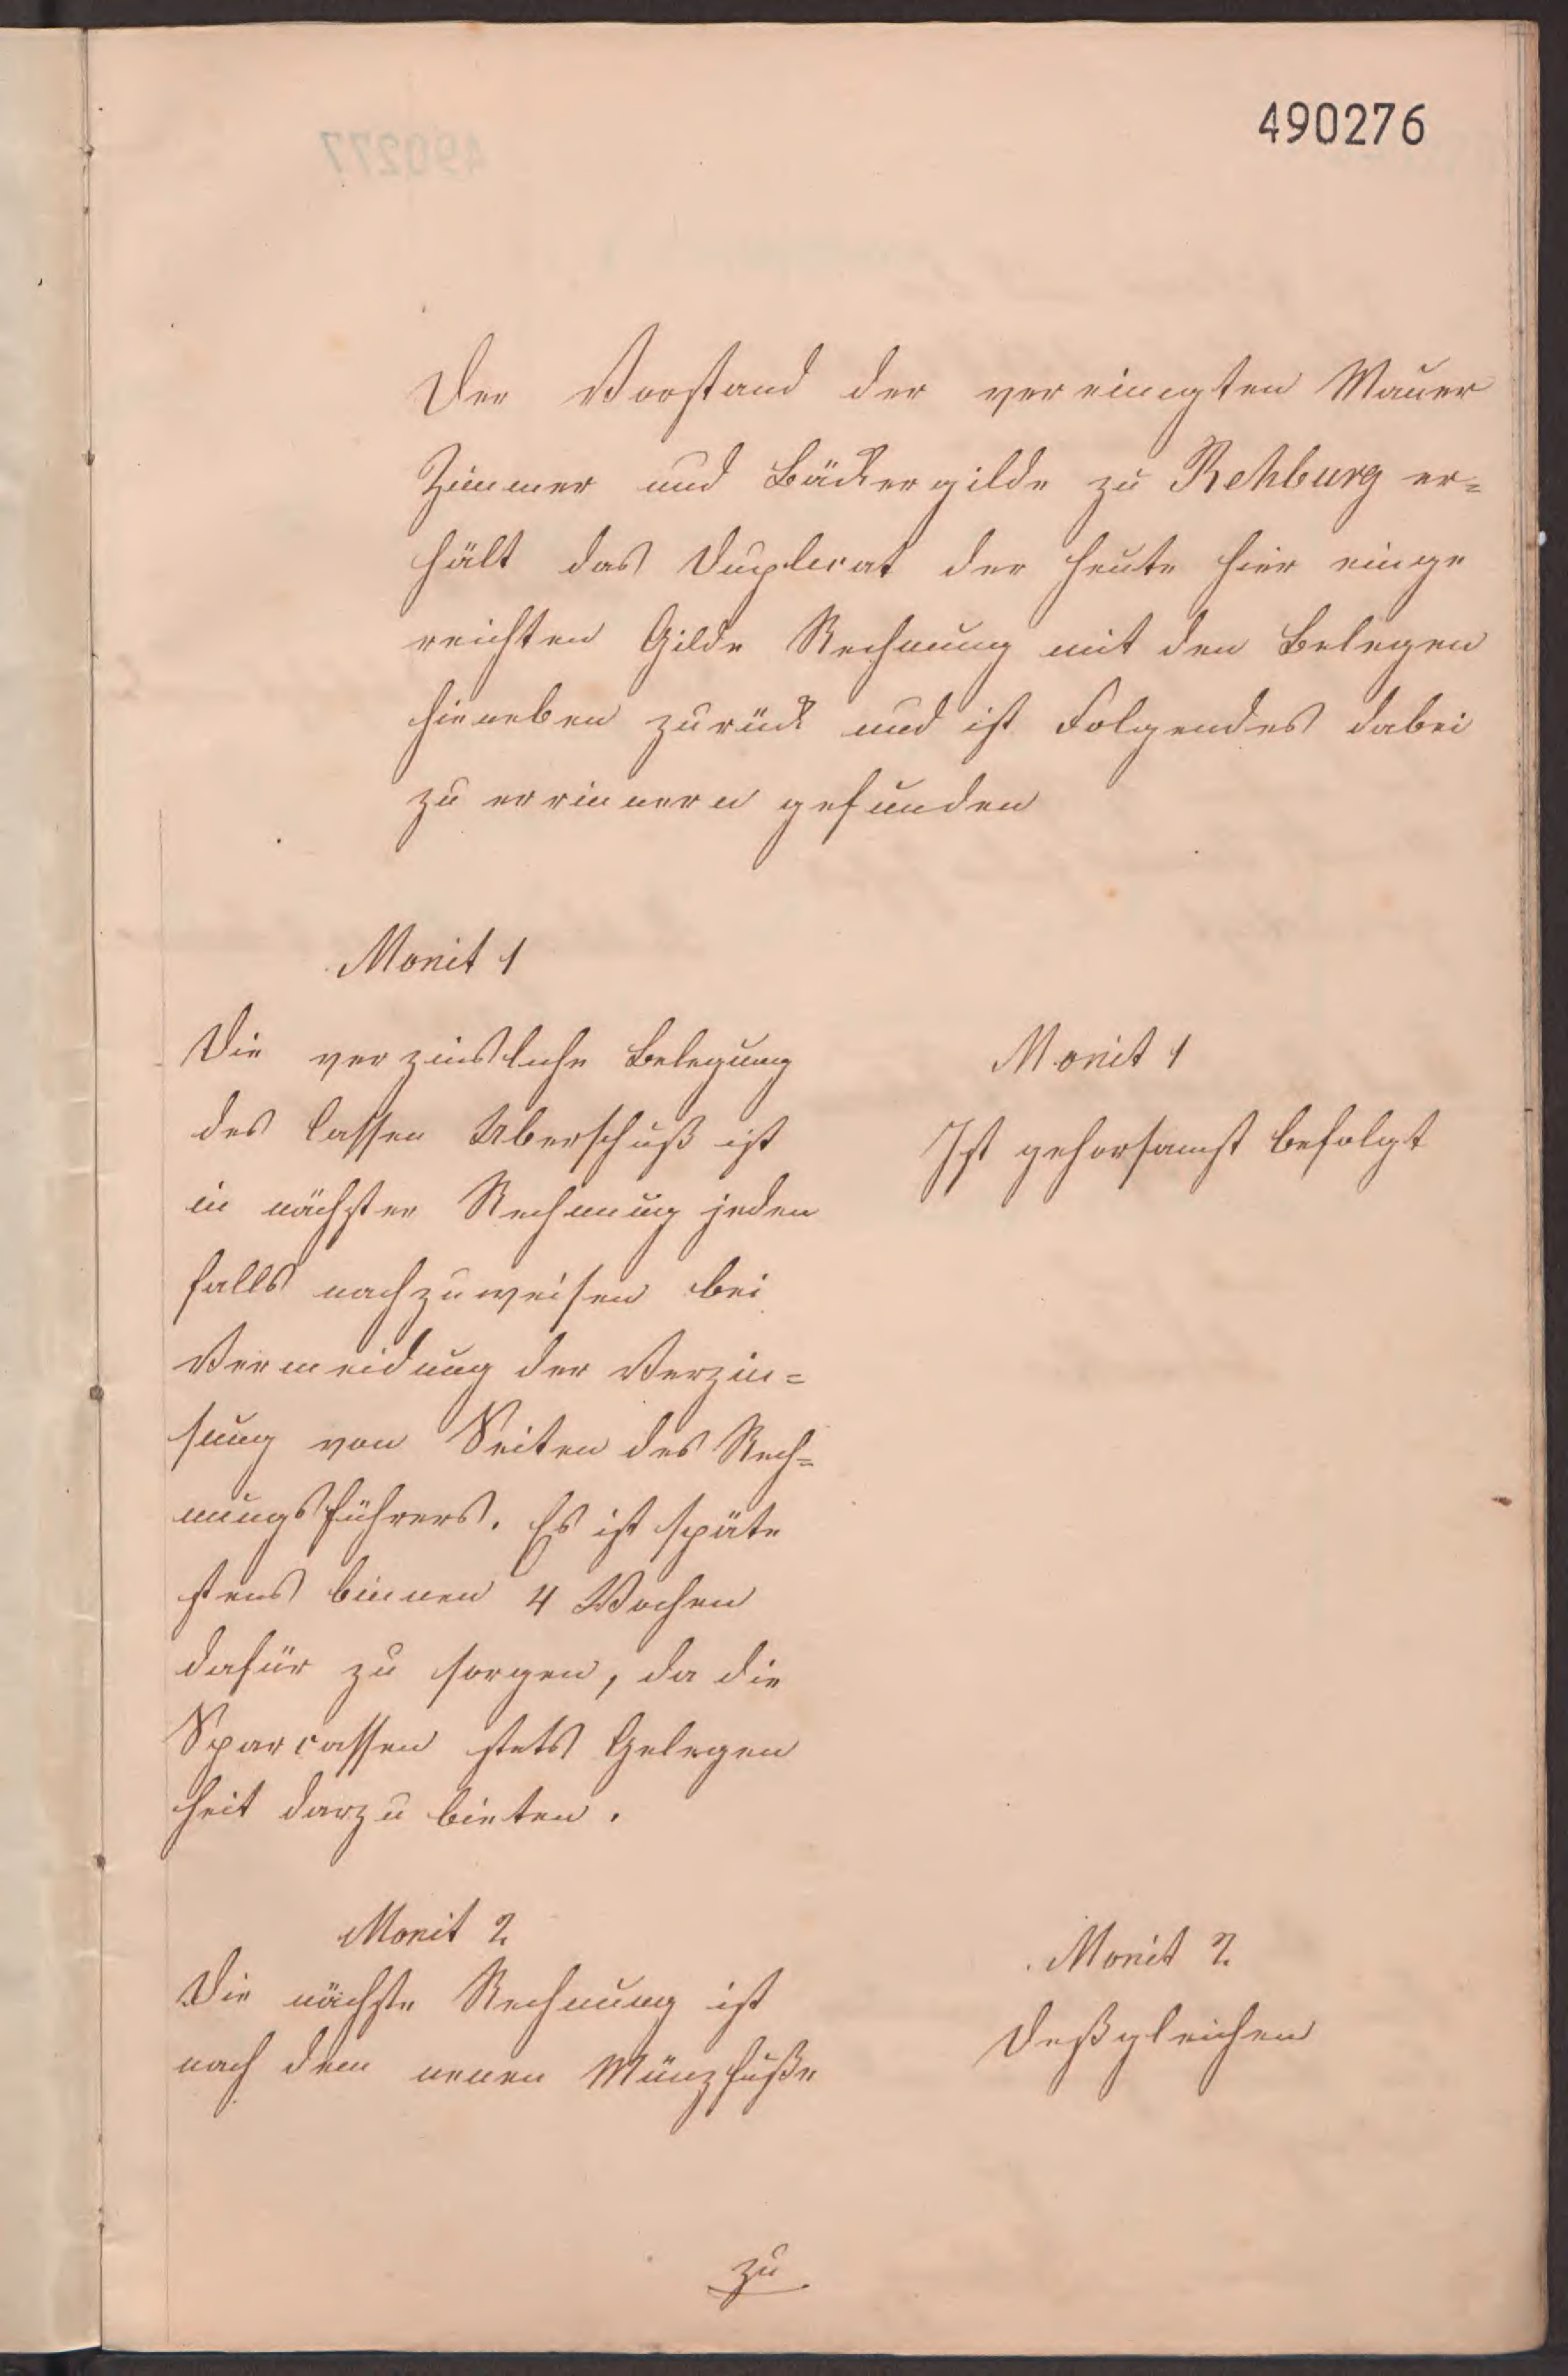 490276
Der Vorstand der vereinigten Mauer
Zimmer und Bäckergilde zu Rehburg er=
hält das Duplicat der heute hier einge
reichten Gilde Rechnung mit den Belegen
hieneben zurück und ist Folgendes dabei
zu errinnern gefunden
Monit 1
Die verzinsliche Belegung
des Cassen Uberschuß ist
in nächster Rechnung jeden
falls nachzuweisen bei
Vermeidung der Verzin=
sung von Seiten des Rech=
nungsführers. Es ist späte
stens binnen 4 Wochen
dafür zu sorgen, da die
Sparcassen stets Gelegen
heit darzu bieten.
Monit 1
Ist gehorsamst befolgt
Monit 2
Die nächste Rechnung ist
nach dem neuen Münzfuße
Monit 2
Deßgleichen
zu